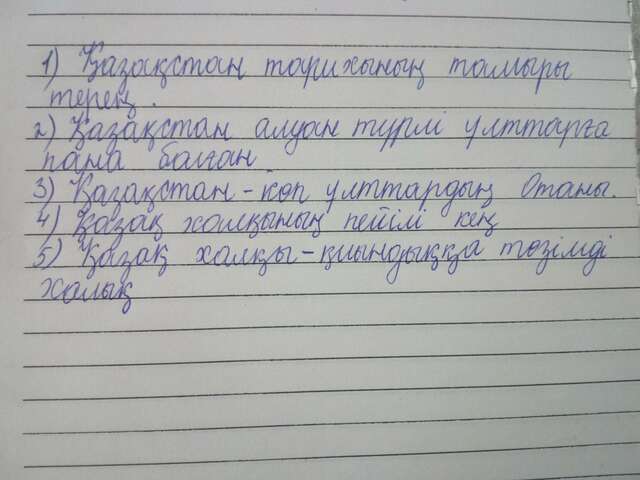 1) Қазақстан тарихының тамыры
терең.
2) Қазақстан алуан түрлі ұлттарға
пана болған.
3) Қазақстан-көп ұлттардың Отаны.
4) Қазақ халқының пейілі кең
5) Қазақ халқы-қиындыққа төзімді
халық